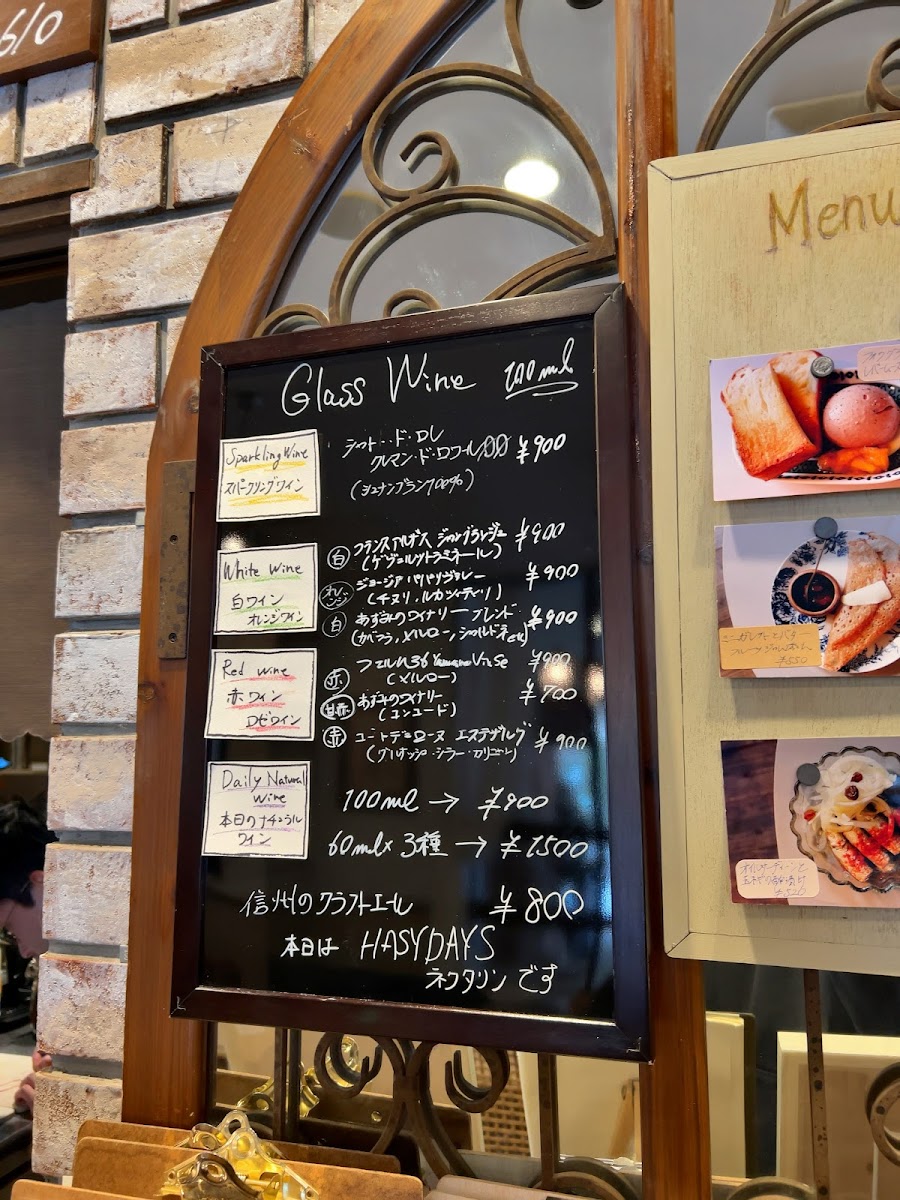 610
Glass Wine 100ml
Sparkling Wine
スパークリングワイン
シャトー・ド・ロレ
クレマン・ド・ロワール ¥900
(シュナンブラン100%)
White Wine
白ワイン
オレンジワイン
白 フランス アルザス ¥900
(ゲヴュルツトラミネール)
オレンジ ジョージア パパリヴァレー ¥900
(チヌリ、ルカツィテリ)
白 あずみのワイナリー ブレンド ¥900
メルロー、シャルドネetc)
Red Wine
赤ワイン
ロゼワイン
赤 フェルム36 ¥900
(メルロー)
甘赤 あずみのワイナリー ¥700
(コンコード)
赤 コートデュローヌ エステザルグ ¥900
(グルナッシュ・シラー・カリニャン)
Daily Natural
Wine
本日のナチュラル
ワイン
100ml → ¥900
60ml×3種 → ¥1500
信州のクラフトエール ¥800
本日は HASYDAYS
ネクタリンです
Menu
ミニガレットとバター
¥550